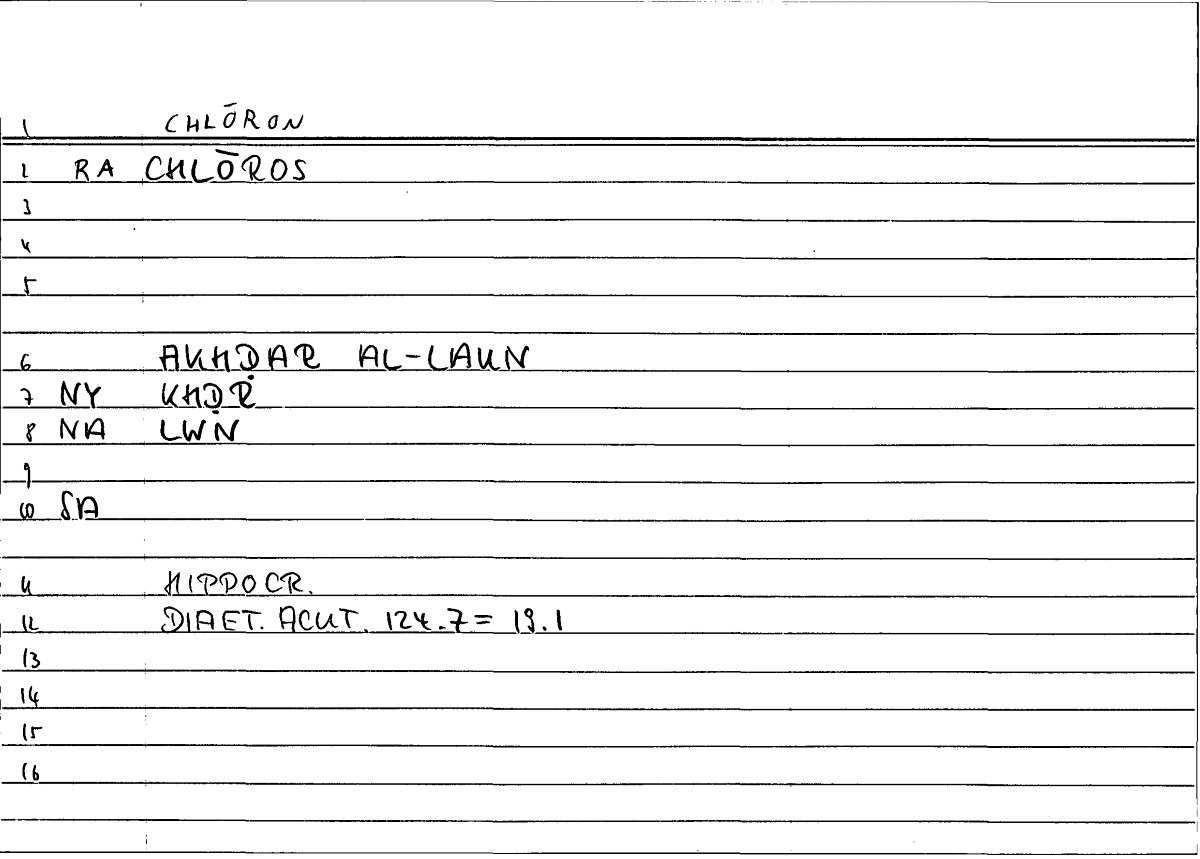 1 CHLŌRON
2 RA CHLŌROS
3
4
5
6 AKHḌAR AL-LAUN
7 NY KHḌR
8 NA LWN
9
10 SA
11 HIPPOCR.
12 DIAET. ACUT. 124.7 = 19.1
13
14
15
16